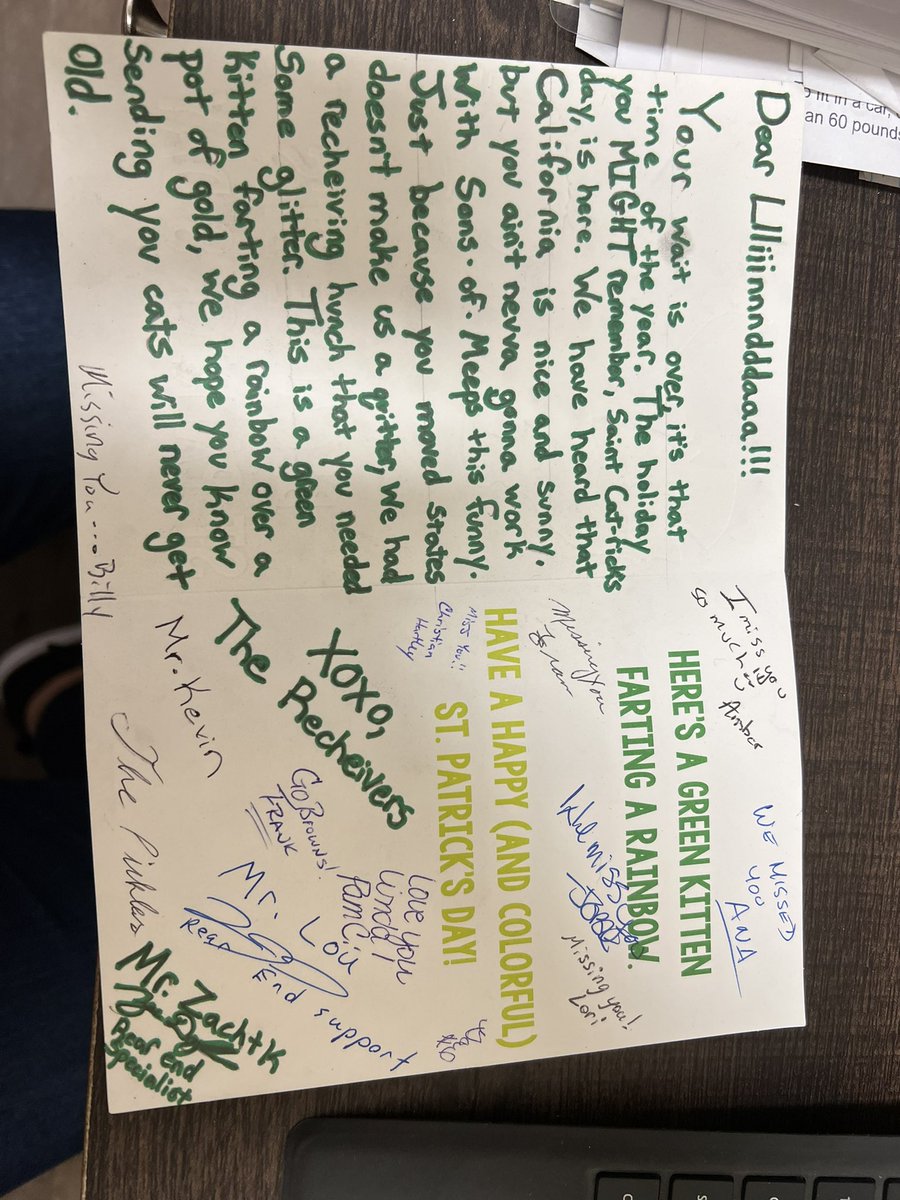 Dear Llliiinnndddaaa!!!
Your wait is over, it's that
time of the year. The holiday
you MIGHT remember, Saint Cat-ricks
day, is here. We have heard that
California is nice and sunny.
but you ain't nevva gonna work
with Sons. of. Meeps this funny.
Just because you moved states
doesn't make us a qritter, we had
a recheiving hunch that you needed
Some glitter. This is a green
kitten farting a rainbow over a
pot of gold, we hope you know
Sending you cats will never get
old.
Missing You...Billy
I miss you
so much :)
Amber
WE MISSED
YOU
ANA
HERE'S A GREEN KITTEN
FARTING A RAINBOW.
Missing You
We miss you
Missing you!
Lori
HAVE A HAPPY (AND COLORFUL)
ST. PATRICK'S DAY!
Miss You!!
Christian
Hartley
XOXO,
The Recheivers
Love you
Linda!
Pam C
GO BROWNS!
FRANK
Mr. Lou
Rear End support
Mr. Kevin
The Pickles
Mr. Zach + K
Rear End
Specialist